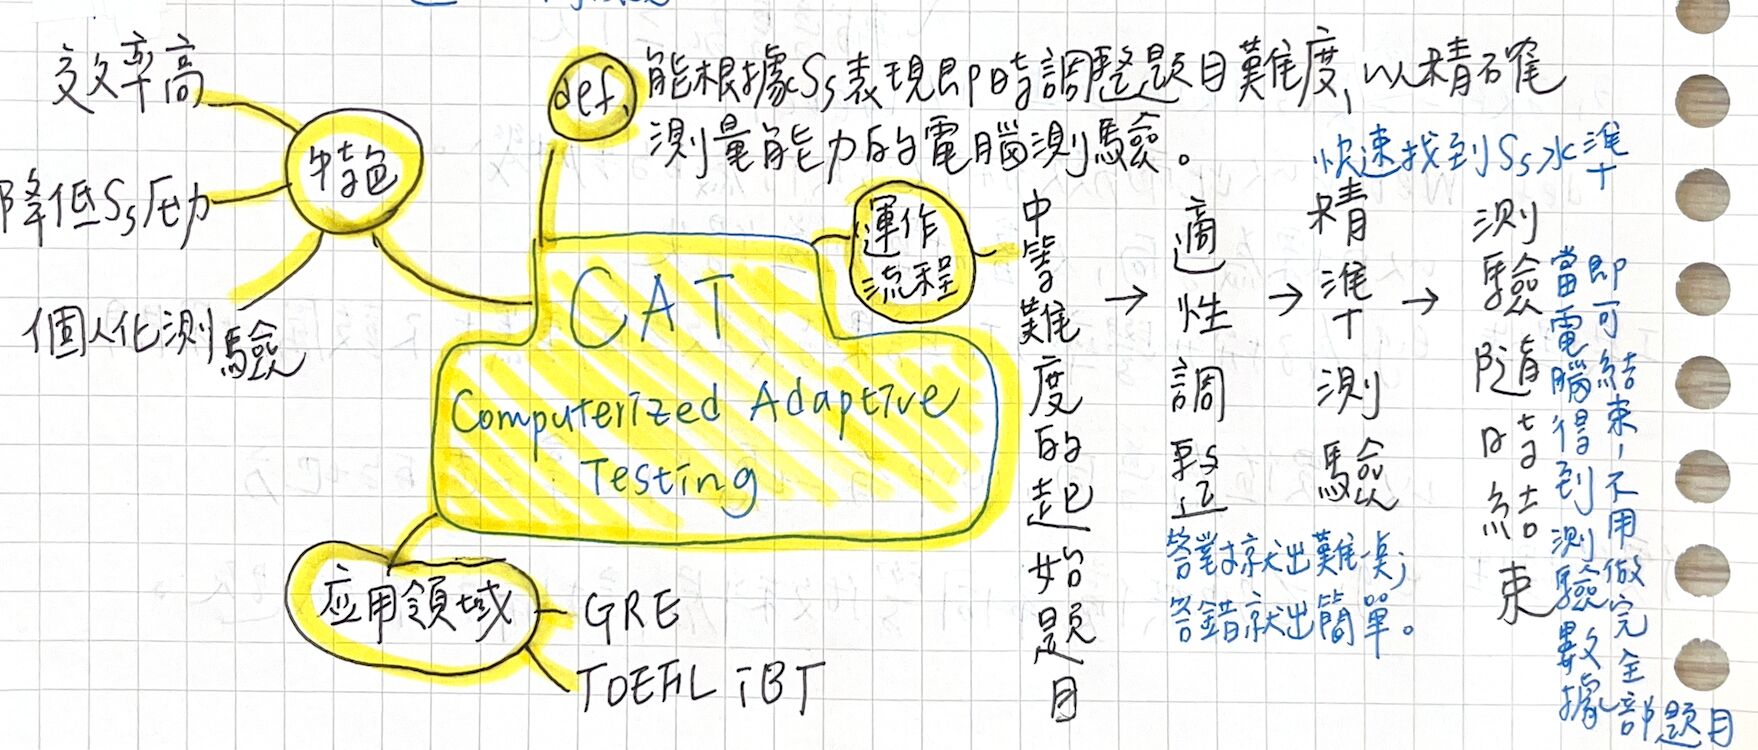 def. 能根據Ss表現即時調整題目難度,以精確
測量能力的電腦測驗。
特色
效率高
降低Ss壓力
個人化測驗
CAT
Computerized Adaptive
Testing
運作
流程
中等難度的起始題目
→
適性調整
答對就出難一點;
答錯就出簡單。
→
快速找到Ss水準
精準測驗
→
測驗隨時結束
當電腦得到測驗數據
即可結束,不用做完全部題目
应用領域
GRE
TOEFL iBT